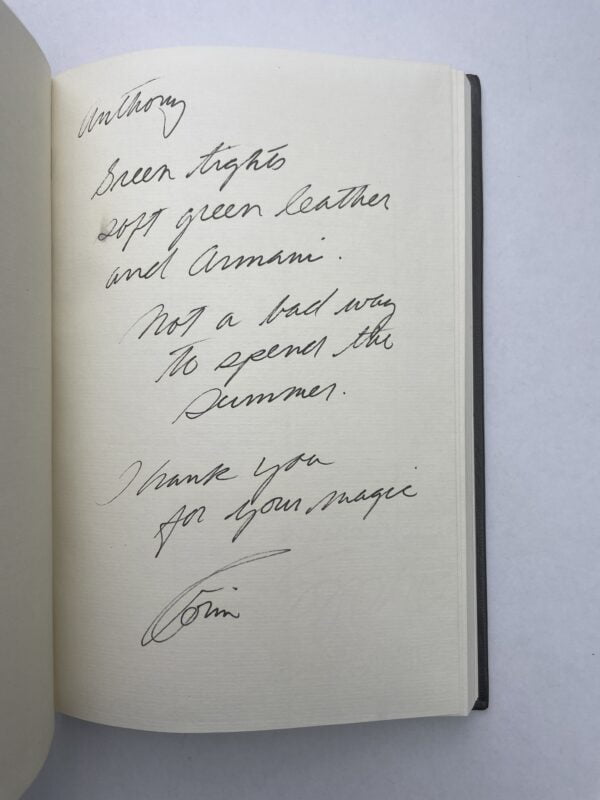 Anthony
Green tights
soft green leather
and Armani.
Not a bad way
to spend the
summer.
Thank you
for your magic